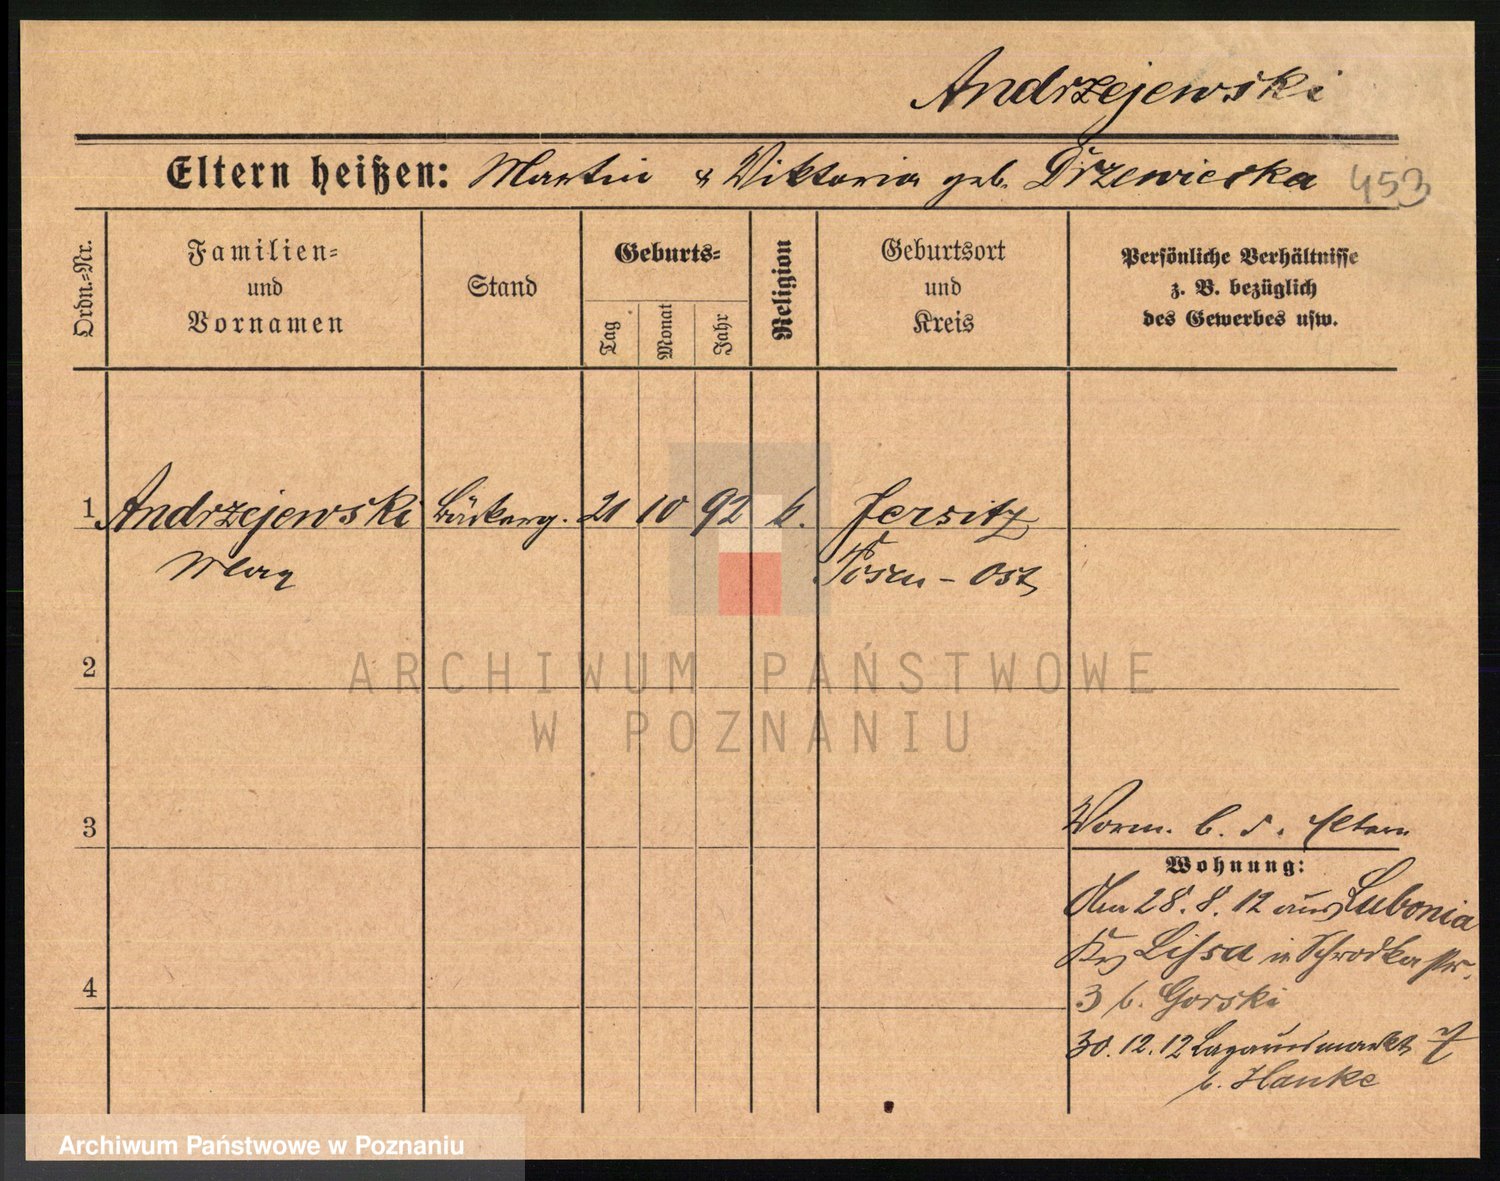 Andrzejewski
Eltern heißen: Martin & Viktoria geb. Drzewieska 453
Ordn.-Nr.
Familien-
und
Vornamen
Stand
Geburts-
Tag
Monat
Jahr
Religion
Geburtsort
und
Kreis
Persönliche Verhältnisse
z. B. bezüglich
des Gewerbes usw.
1 Andrzejewski Bäckerg. 21 10 92 k. Jersitz
Max Posen-Ost
2
ARCHIWUM PAŃSTWOWE
W POZNANIU
3
Vorm. b. d. Eltern
Wohnung:
Am 28.8.12 aus Lubonia
Krs Lissa in Schrodka str.
4
3 b. Gorski
30.12.12 7
b. Hanke
Archiwum Państwowe w Poznaniu